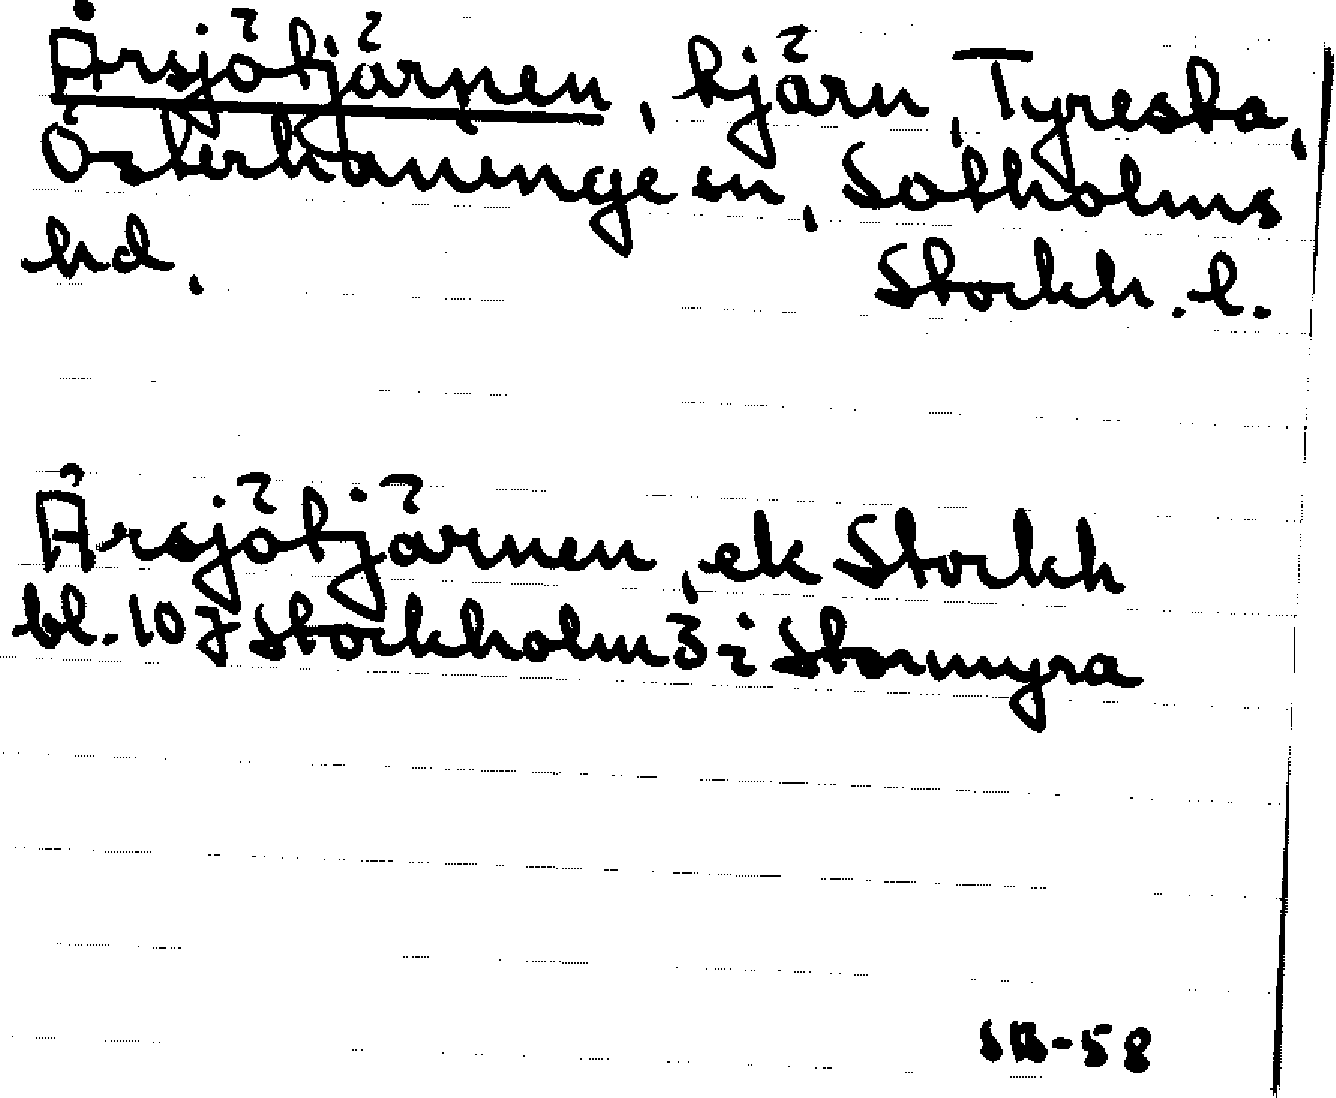 Årsjötjärnen, tjärn, Tyresta,
Österhaninge sn, Sotholms
hd. Stockh. l.
Årsjötjärnen, ek Stockh
bl. 10 J Stockholm 3 i Stormyra
SB-58